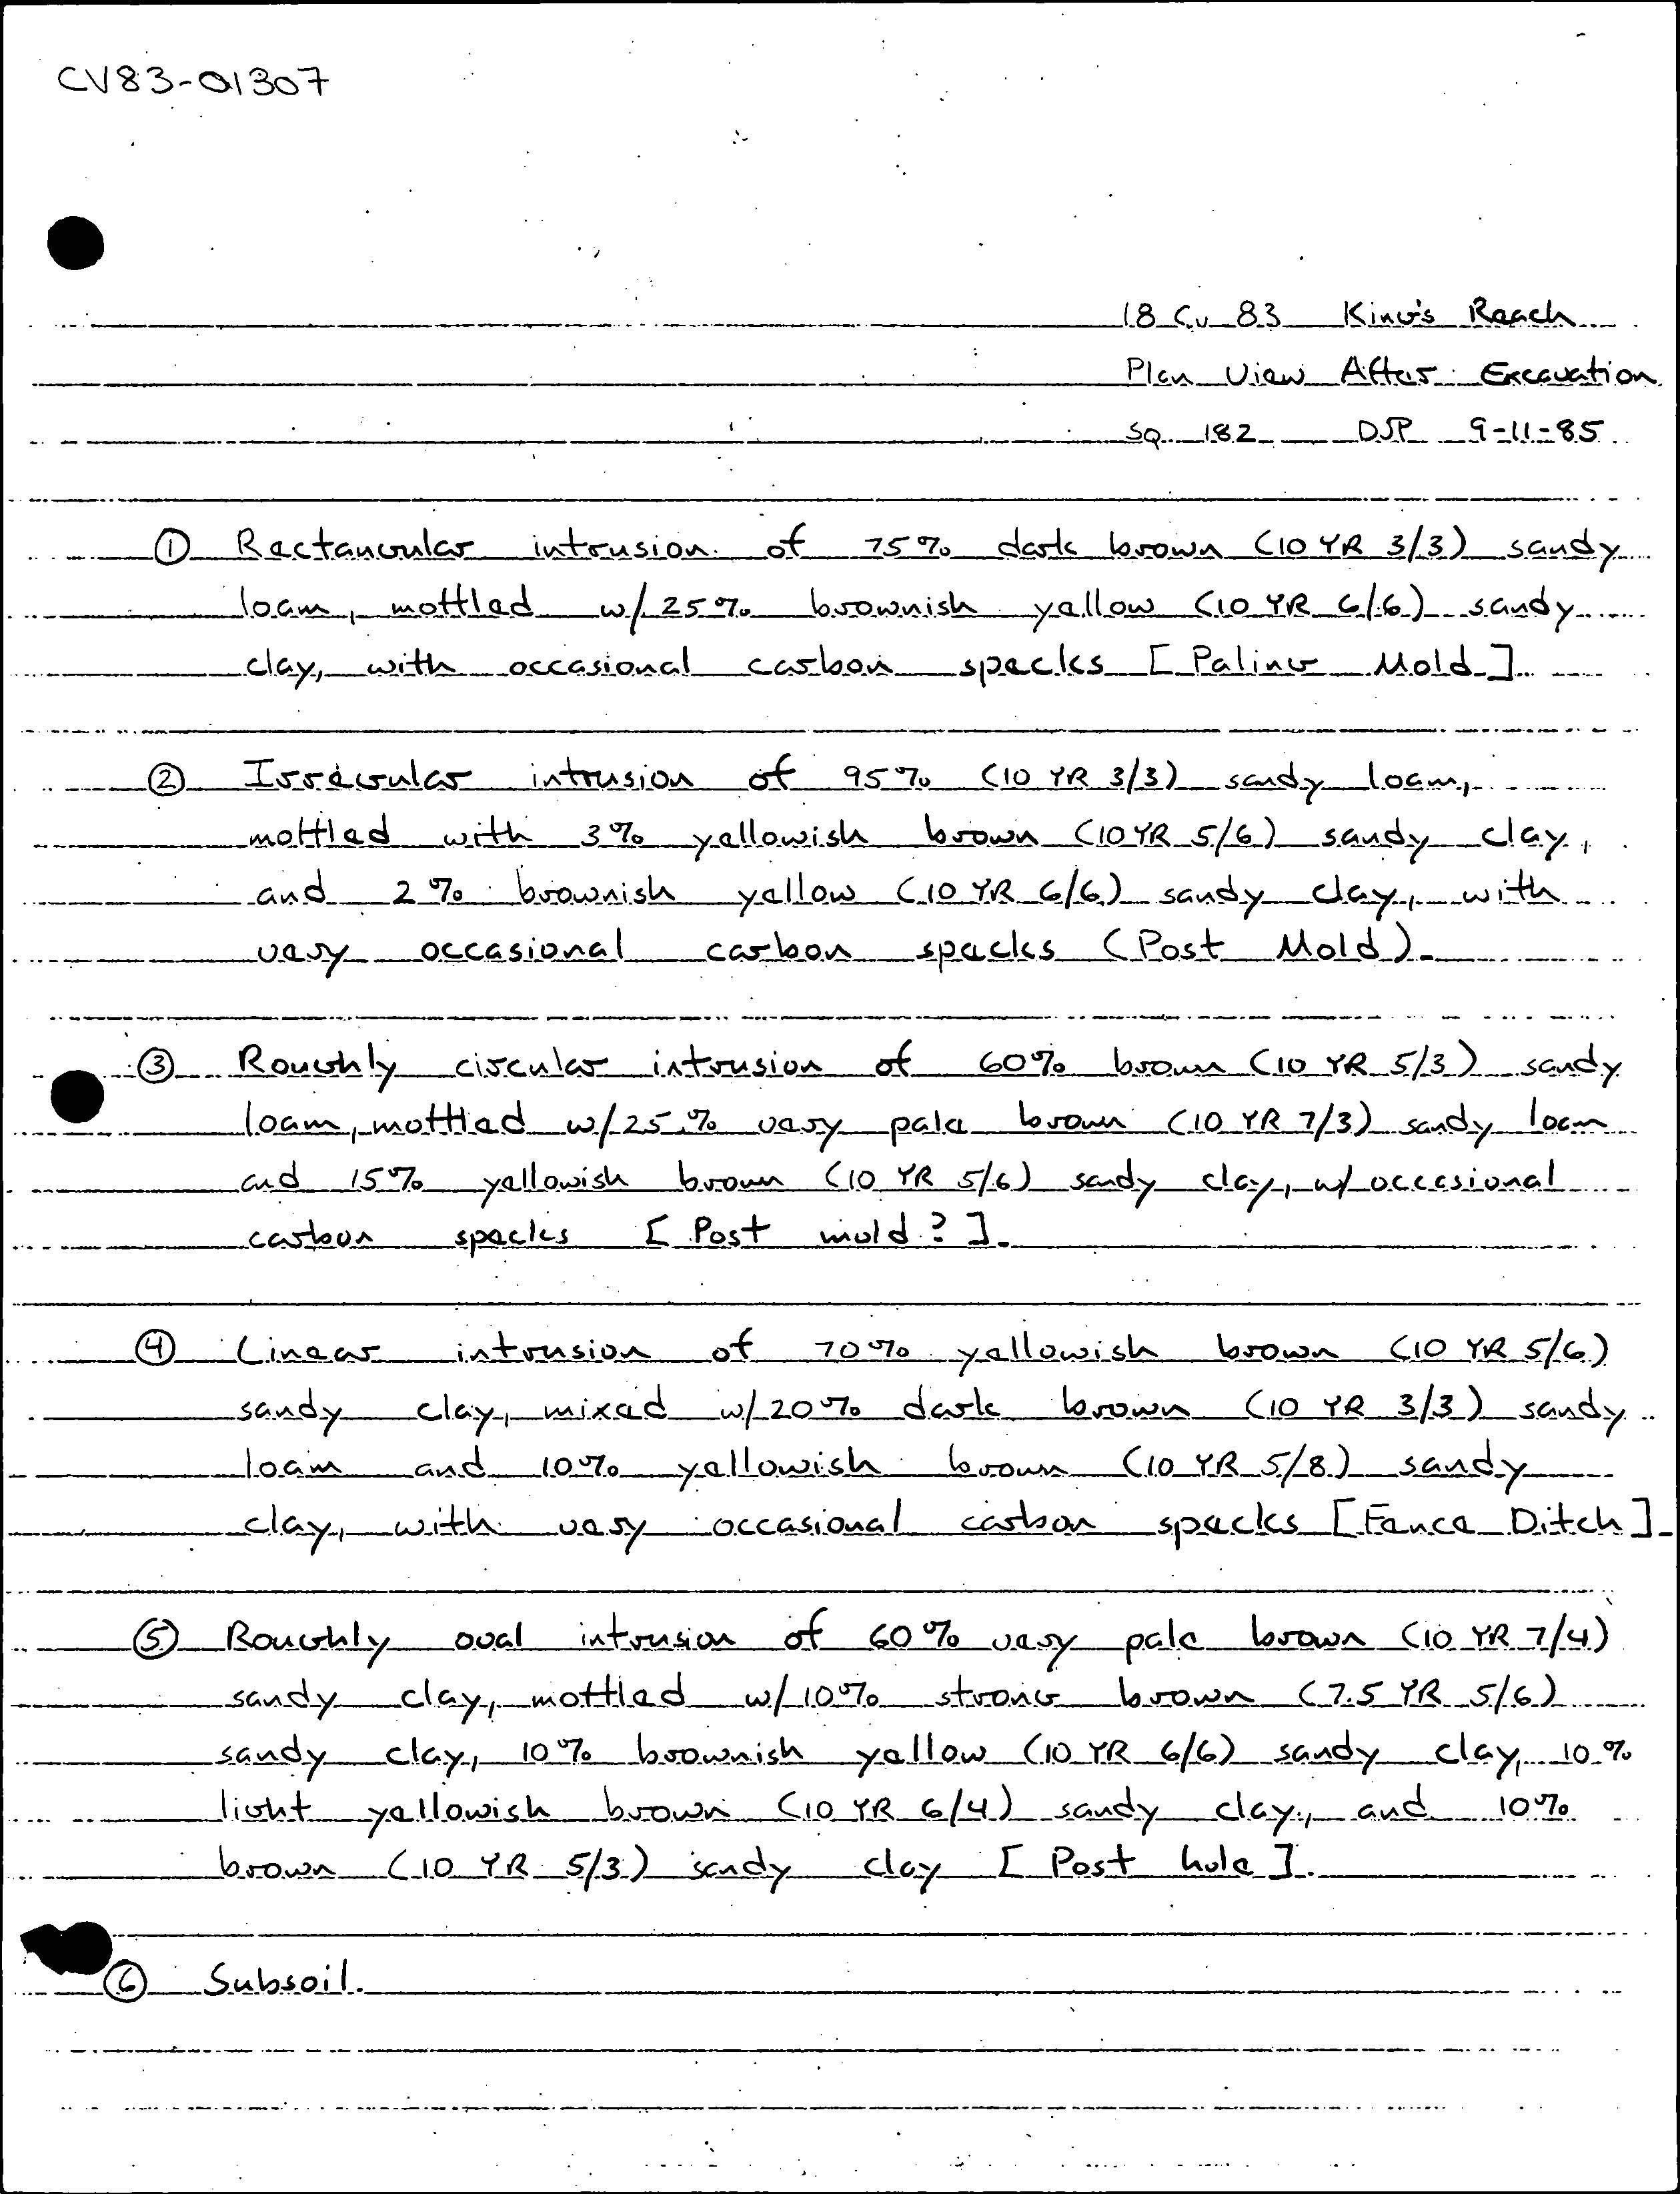 CV83-01307
18 Cv 83 King's Reach
Plan View After Excavation
SQ 182 DJP 9-11-85
① Rectangular intrusion of 75% dark brown (10 YR 3/3) sandy
loam, mottled w/ 25% brownish yellow (10 YR 6/6) sandy
clay, with occasional carbon specks [Paling Mold].
② Irregular intrusion of 95% (10 YR 3/3) sandy loam,
mottled with 3% yellowish brown (10 YR 5/6) sandy clay,
and 2% brownish yellow (10 YR 6/6) sandy clay, with
very occasional carbon specks (Post Mold).
③ Roughly circular intrusion of 60% brown (10 YR 5/3) sandy
loam, mottled w/ 25% very pale brown (10 YR 7/3) sandy loam
and 15% yellowish brown (10 YR 5/6) sandy clay, w/ occasional
carbon specks [Post mold?].
④ Linear intrusion of 70% yellowish brown (10 YR 5/6)
sandy clay, mixed w/ 20% dark brown (10 YR 3/3) sandy
loam and 10% yellowish brown (10 YR 5/8) sandy
clay, with very occasional carbon specks [Fence Ditch].
⑤ Roughly oval intrusion of 60% very pale brown (10 YR 7/4)
sandy clay, mottled w/ 10% strong brown (7.5 YR 5/6)
sandy clay, 10% brownish yellow (10 YR 6/6) sandy clay, 10%
light yellowish brown (10 YR 6/4) sandy clay, and 10%
brown (10 YR 5/3) sandy clay [Post hole].
⑥ Subsoil.